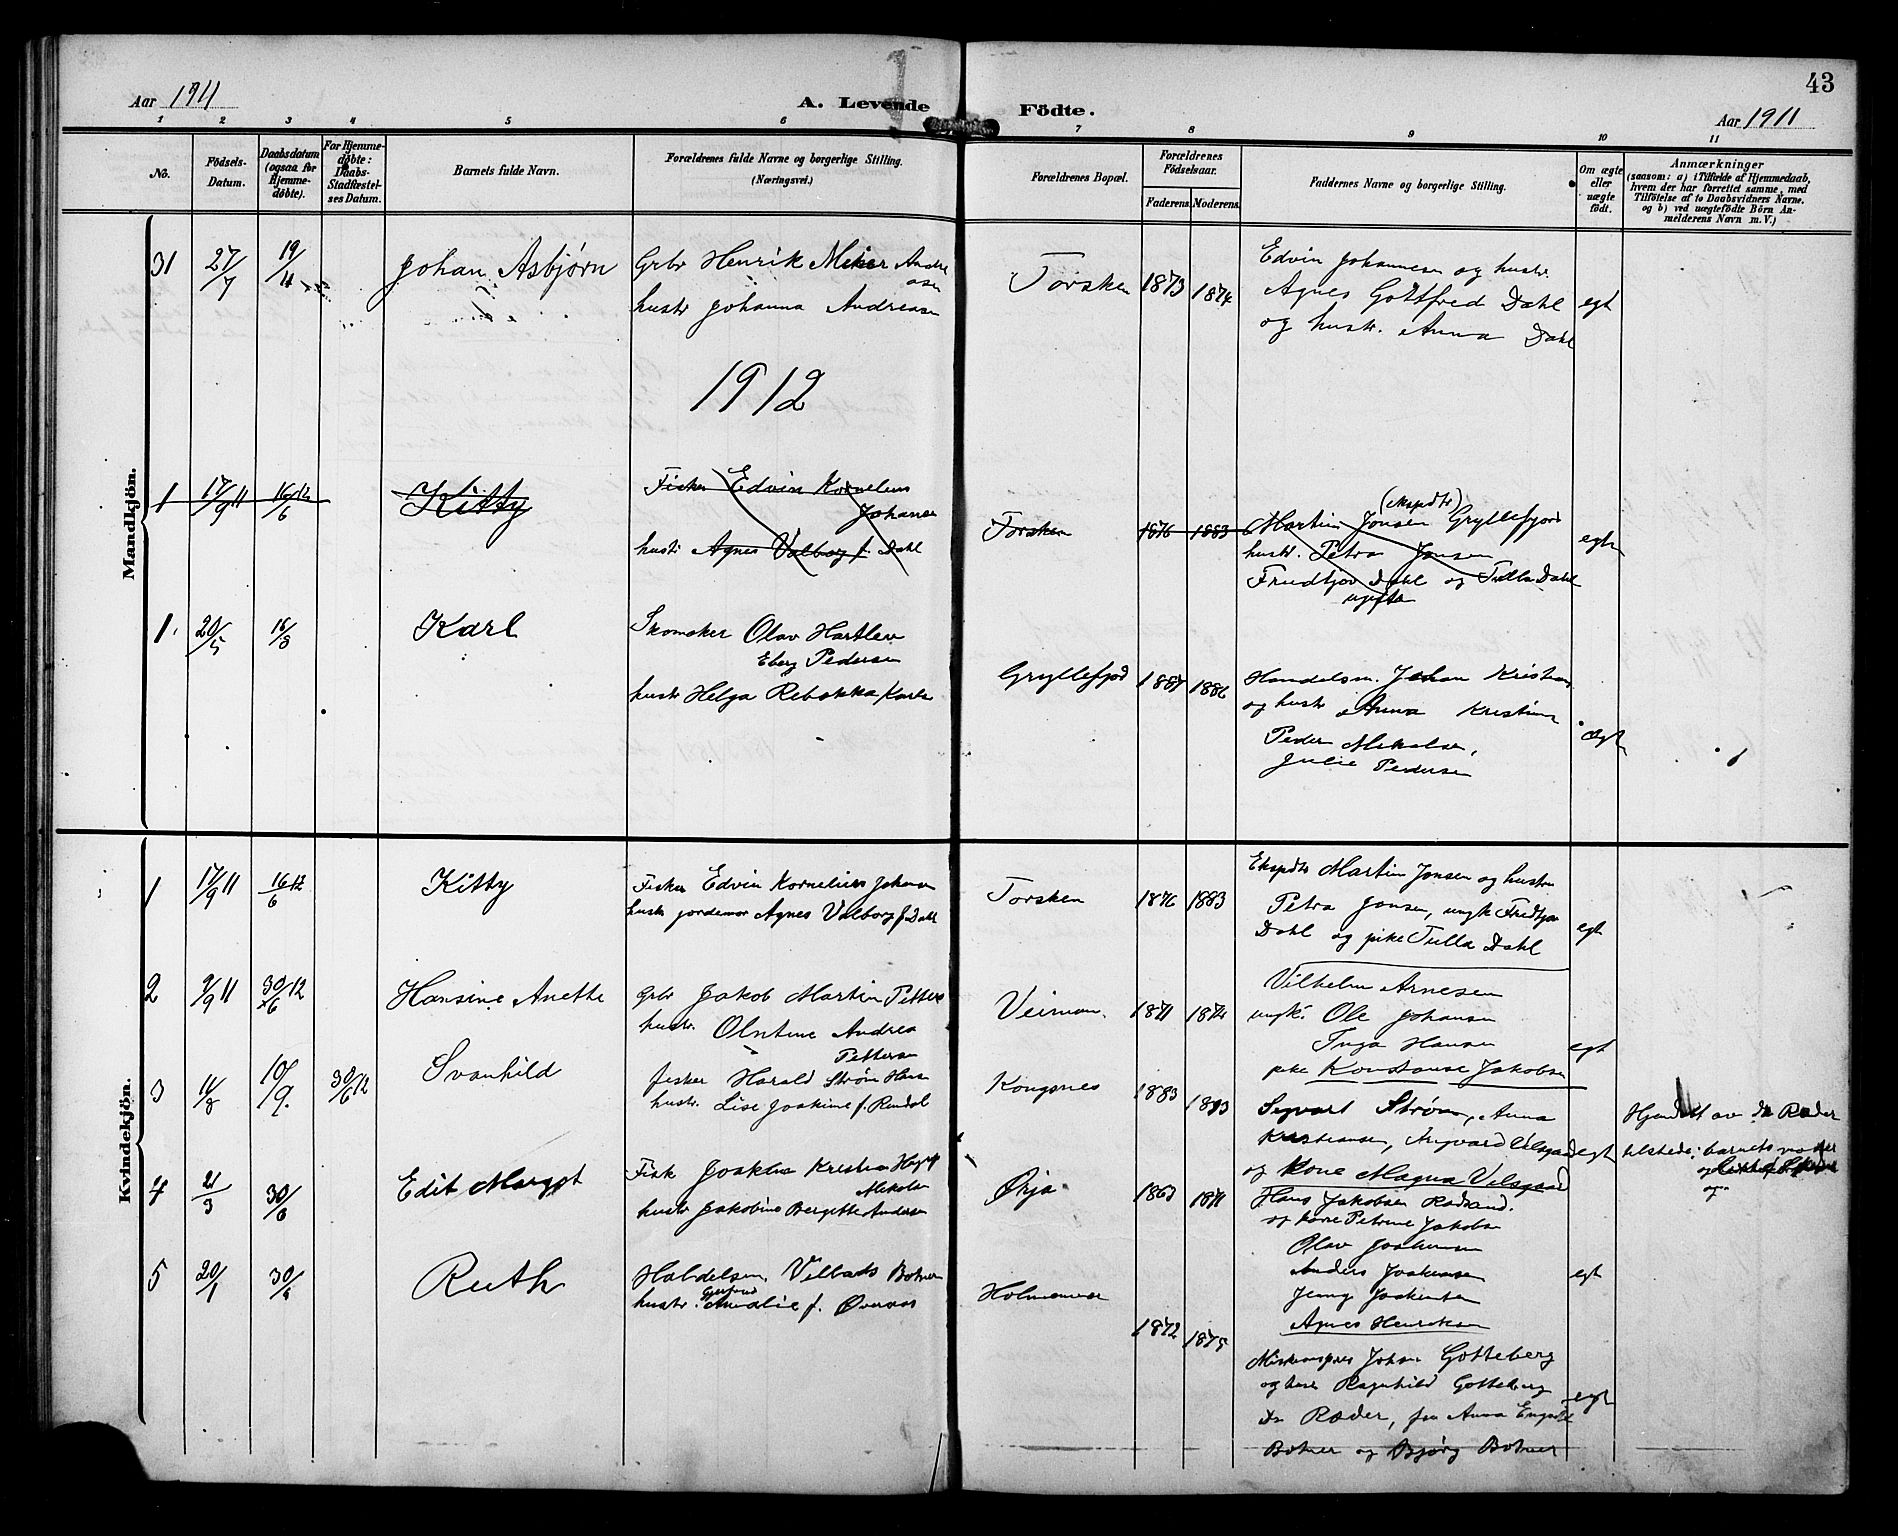 43
Aar 1911
A. Levende Födte.
Aar 1911
1 2 3 4 5 6 7 8 9 10 11
No.
Födsels-
Datum.
Daabsdatum
(ogsaa for
Hjemme-
döbte).
For Hjemme-
döbte:
Daabs-
Stadfæstel-
ses Datum.
Barnets fulde Navn.
Forældrenes fulde Navne og borgerlige Stilling.
(Næringsvei.)
Forældrenes Bopæl.
Forældrenes
Födselsaar.
Faderens. Moderens.
Faddernes Navne og borgerlige Stilling.
Om ægte
eller
uægte
födt.
Anmærkninger
(saasom: a) i Tilfælde af Hjemmedaab,
hvem der har forrettet samme, med
Tilföielse af to Daabsvidners Navne.
og b) ved uægtefödte Börn An-
melderens Navn m. V.)
Mandkjön.
31 27/7 19/11 Johan Asbjørn
Grbr Henrik Andre
asen
hustr Johanna Andreasen
Torsken 1873 1874
Edvin Johannesen og hustr
Agnes Gottfred Dahl
og hustr. Anna Dahl
egt
1912
1 17/9 11 16/6 12 Kitty
Fisker Edvin Kornelius
Johansen
hustr Agnes Valborg f. Dahl
Torsken 1876 1883
(ekspedtr)
Martin Jonsen Gryllefjord
hustr. Petra Jonsen
Fridtjov Dahl og Tulla Dahl
ugifte
egte
1. 20/5 Karl
Skomaker Olav Hartlev
Eberg Pedersen
hustr Helga Rebekka
Gryllefjord 1887 1886
Handelsm. Johan Kristians
og hustr Anna Kristine
Peder Mikalsen,
Julie Pedersen
ægte
Kvindekjön.
1 17/9 11 16/6 12 Kitty
Fisker Edvin Kornelius Johansen
hustr jordemor Agnes Valborg f. Dahl
Torsken 1876 1883
Ekspedtr Martin Jonsen og hustru
Petra Jonsen, ungk Fridtjov
Dahl og pike Tulla Dahl
egt
2 9/9 11 30/6 12 Hansine Anette
Grbr Jakob Martin Petters
hustr. Olntine Andrea
Pettersen
1871 1874
Vilhelm Arnesen
ungk. Ole Johansen
Inga Hansen
pike Konstanse Jakobsen
egt
3 10/9. 30/6 12 Svanhild
fisker Harald Strøm Hans
hustr. Lise Joakime f. Rendal
Kongsnes 1883
Sigvart Strøm, Anna
Kristiansen, Angvard Velsgaad
og kone Magna Velsgaad
egt
Hjemdøbt av dr Ræder
tilstede: barnets moder
og
4 21/3 30/6 Edit Margrt
Fisk Joakim Kristian
Mikalsen
hustr Jakobine Bergitte Andersen
Ørja 1863 1871
Hans Jakobsen Rødsand.
og kone Petrine Jakobsen
Olav Joakimsen
Anders Joakimsen
Jenny Joakimsen
Agnes Henriksen
egt
5 20/1 Ruth
Handelsm. Botner
hustr. Amalie f.
1872 1875
Johan Gotteberg
Ragnhild Gotteberg
Dr Ræder, frk Anna
Botner og Bjørg Botner
egt